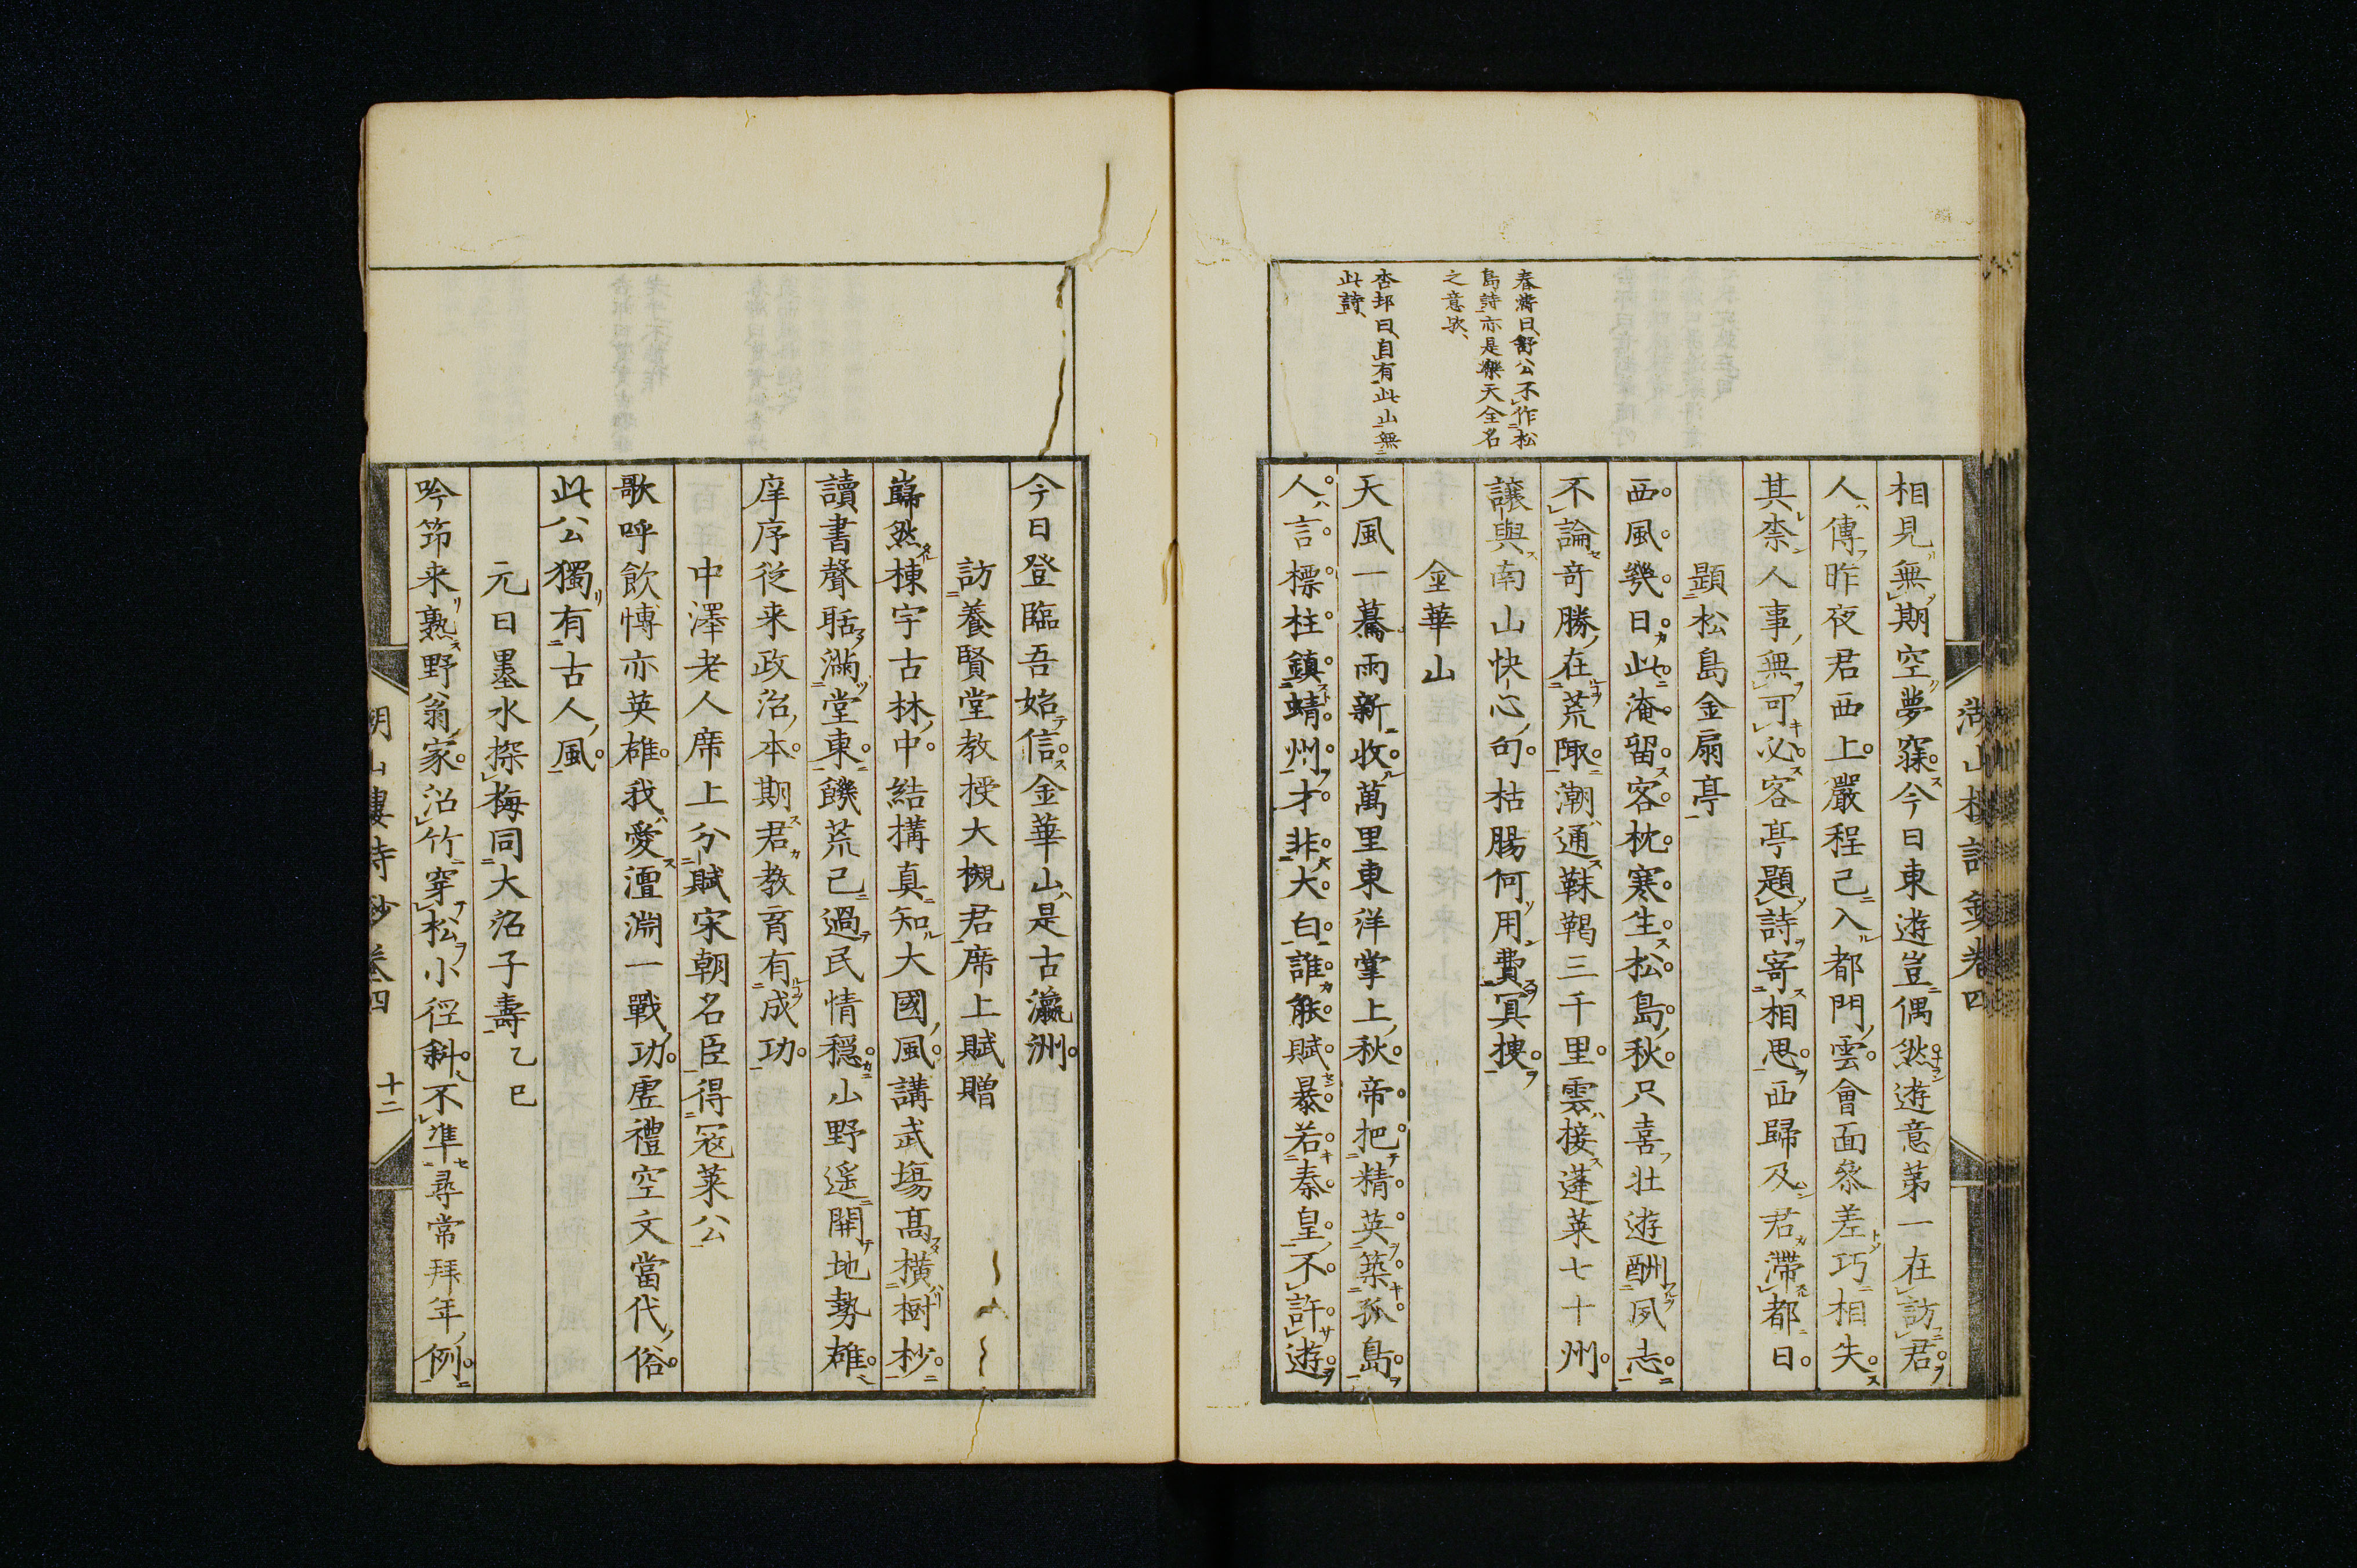 春濤曰、舒公不作松
島詩、亦是樂天全名
之意歟、
杏邨曰、自有此山無
此詩、
相見無期空夢寐今日東遊豈偶然遊意第一在訪君
人傳昨夜君西上嚴程已入都門雲會面參差巧相失
其柰人事無可必客亭題詩寄相思西歸及君滯都日
題松島金扇亭
西風幾日此淹留客枕寒生松島秋只喜壯遊酬夙志
不論奇勝在荒陬潮通靺鞨三千里雲接蓬萊七十州
讓與南山快心句枯腸何用費冥搜
金華山
天風一驀雨新收萬里東洋掌上秋帝把精英築孤島
人言標柱鎮蜻州才非大白誰能賦暴若秦皇不許遊
湖山樓詩鈔卷四
今日登臨吾始信金華山是古瀛洲
訪養賢堂教授大槻君席上賦贈
巋然棟宇古林中結搆真知大國風講武場高橫樹杪
讀書聲聒滿堂東饑荒已過民情穩山野遥開地勢雄
庠序從来政治本期君教育有成功
中澤老人席上分賦宋朝名臣得寇萊公
歌呼飲博亦英雄我愛澶淵一戰功虛禮空文當代俗
此公獨有古人風
元日墨水探梅同大沼子壽乙巳
吟笻来熟野翁家沿竹穿松小徑斜不準尋常拜年例
湖山樓詩鈔卷四 十二